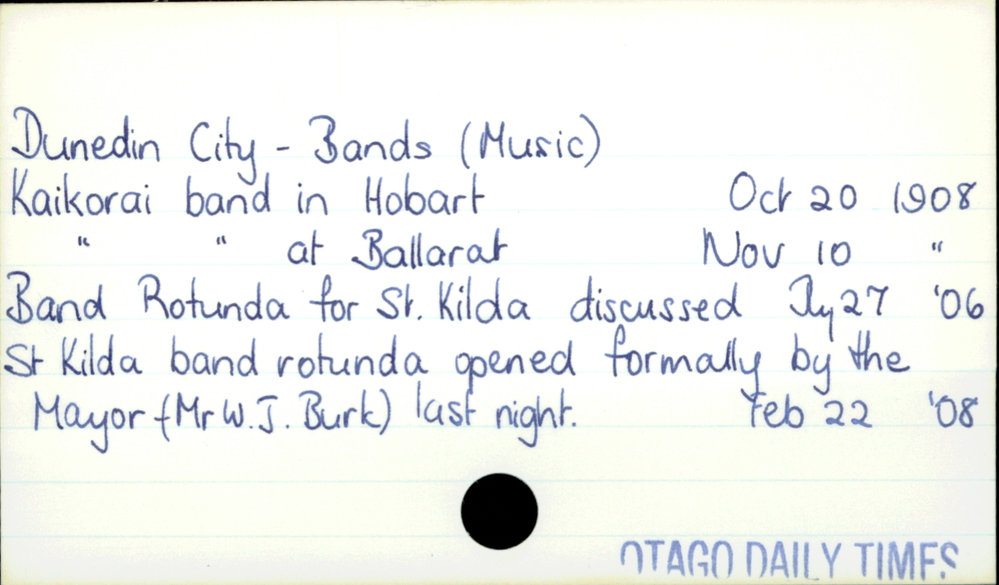 Dunedin City - Bands (Music)
Kaikorai band in Hobart Oct 20 1908
" " at Ballarat Nov 10 "
Band Rotunda for St. Kilda discussed Jly 27 '06
St Kilda band rotunda opened formally by the
Mayor (Mr W.J. Burk) last night. Feb 22 '08
OTAGO DAILY TIMES